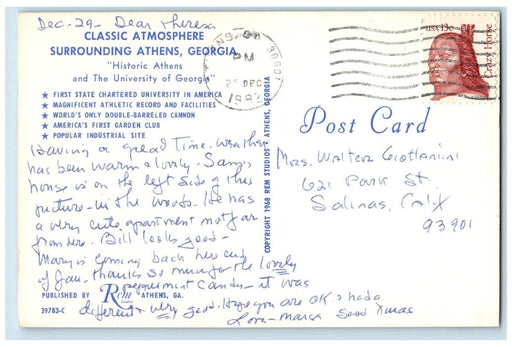 Dec-29- Dear Theresa
CLASSIC ATMOSPHERE
SURROUNDING ATHENS, GEORGIA
"Historic Athens
and The University of Georgia"
★ FIRST STATE CHARTERED UNIVERSITY IN AMERICA
★ MAGNIFICENT ATHLETIC RECORD AND FACILITIES
★ WORLD'S ONLY DOUBLE-BARRELED CANNON
★ AMERICA'S FIRST GARDEN CLUB
★ POPULAR INDUSTRIAL SITE
Having a great Time. Weather
has been warm & lovely. Sam's
house is on the left side of this
picture - in the woods. He has
a very cute apartment not far
from here. Bill looks good -
Mary is coming back here end
of Jan. thanks so much for the lovely
peppermint candy - it was
different & very good. Hope you are OK & had a
Love - Good Xmas
PUBLISHED BY Rem ATHENS, GA.
39783-C
COPYRIGHT 1968 REM STUDIOS, ATHENS, GEORGIA
GA 30601
PM
DEC
USA 13c
Crazy Horse
Post Card
Mrs. Walter
621 Park St.
Salinas, Calif
93901